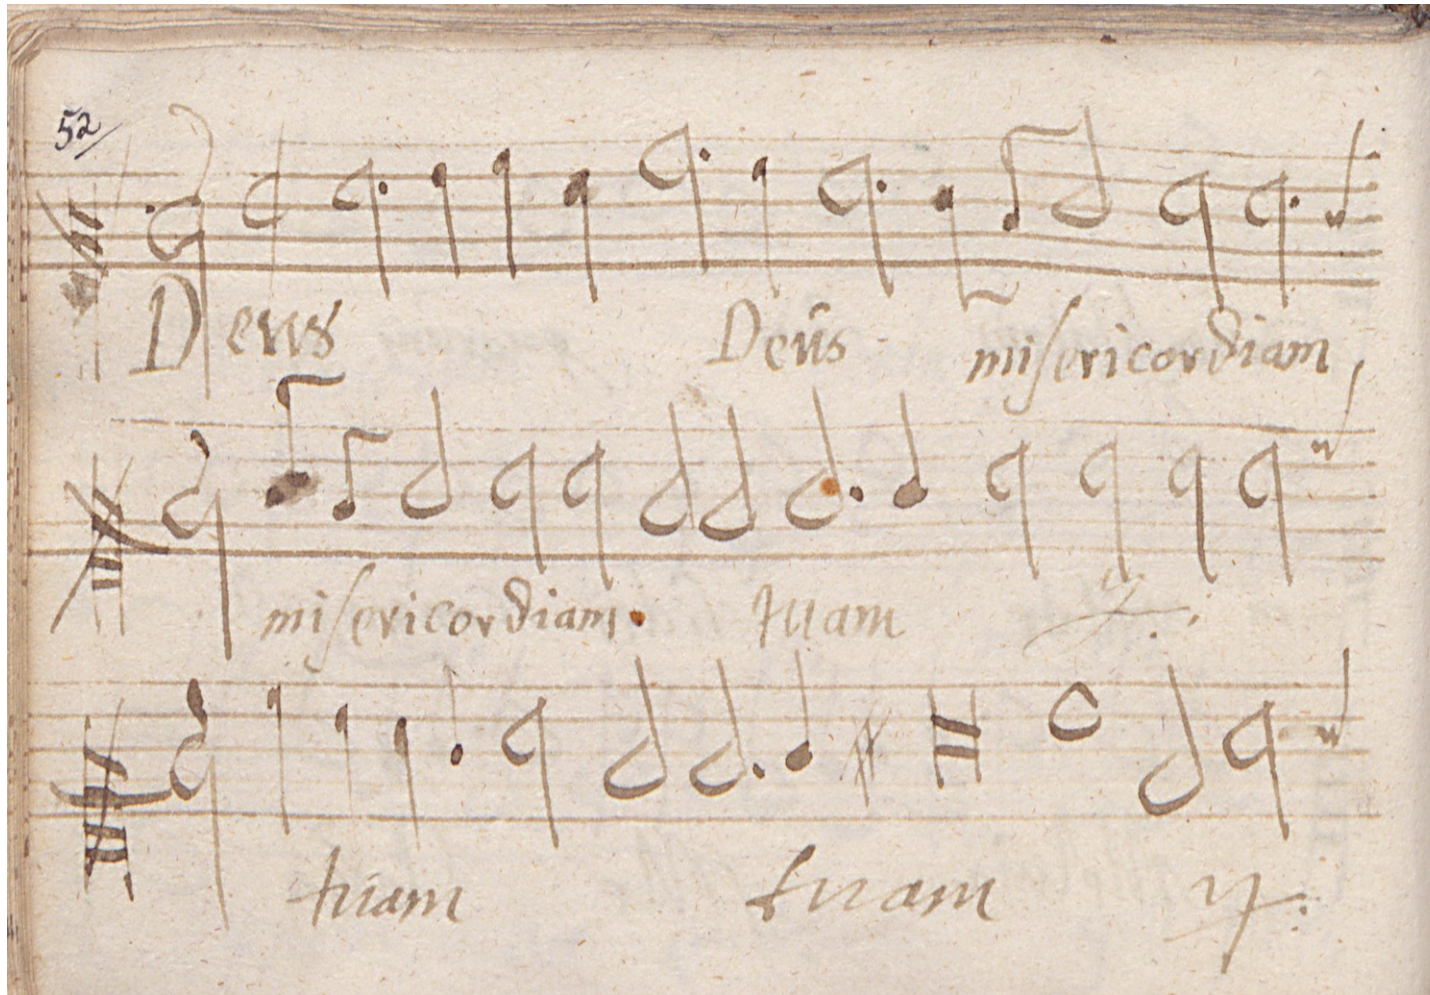 52
Deus Deűs misericordiam
misericordiam. tuam ij.
tuam tuam ij.